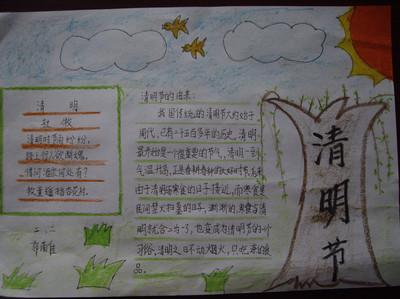 清 明
杜 牧
清明时节雨纷纷,
路上行人欲断魂。
借问酒家何处有?
牧童遥指杏花村。
二、二
清明节的由来:
我国传统的清明节大约始于
周代,已有二千五百多年的历史。清明
最开始是一个很重要的节气,清明一到
气温升高,正是春耕春种的大好时节,
由于清明与寒食的日子接近,而寒食是
民间禁火扫墓的日子,渐渐的,寒食与清
明就合二为一了,也变成为清明节的一个
习俗,清明之日不动烟火,只吃凉的食
品。
清明节